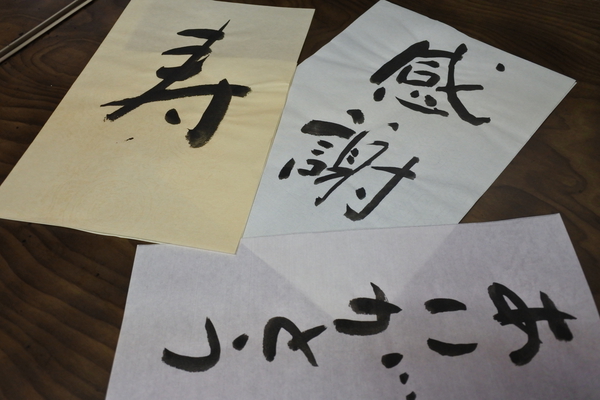 寿
感謝
ありがとう